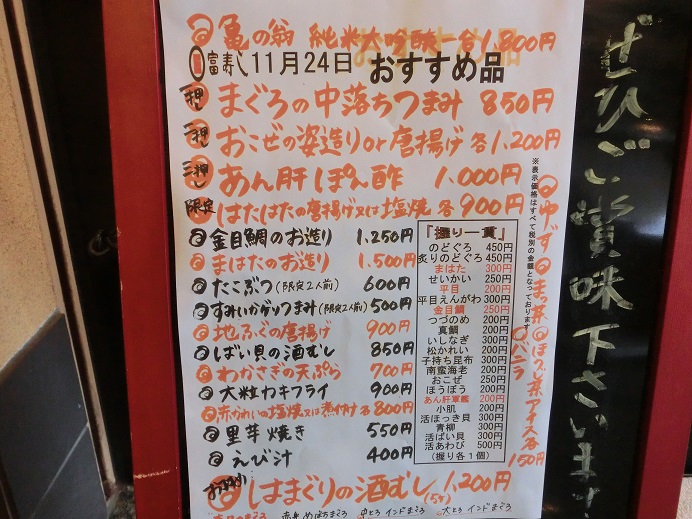 亀の翁 純米大吟醸一合1,800円
富寿し 11月24日 おすすめ品
一押し まぐろの中落ちつまみ 850円
二押し おこぜの姿造りor唐揚げ 各1,200円
三押し あん肝ぽん酢 1,000円
限定 はたはたの唐揚げ又は塩焼 各900円
金目鯛のお造り 1,250円
まはたのお造り 1,500円
たこぶつ(限定2人前) 600円
すみいかゲソつまみ(限定2人前) 500円
地ふぐの唐揚げ 900円
しばい貝の酒むし 850円
わかさぎの天ぷら 700円
大粒カキフライ 900円
赤かれいの塩焼又は煮付け 各800円
里芋焼き 550円
えび汁 400円
はまぐりの酒むし(5ヶ) 1,200円
赤身 めばちまぐろ 中とろ インドまぐろ 大とろ インドまぐろ
「握り一貫」
のどぐろ 450円
炙りのどぐろ 450円
まはた 300円
せいかい 250円
平目 200円
平目えんがわ 300円
金目鯛 250円
つづのめ 200円
真鯛 200円
いしなぎ 300円
松かれい 200円
子持ち昆布 300円
南蛮海老 200円
おこぜ 250円
ほうぼう 200円
あん肝軍艦 200円
小肌 200円
活ほっき貝 300円
青柳 300円
活ばい貝 300円
活あわび 500円
(握り各1個)
※表示価格はすべて税別の金額となっております
ゆず まっ茶 ほうじ茶アイス各150円
バニラ
ぜひご賞味下さいませ